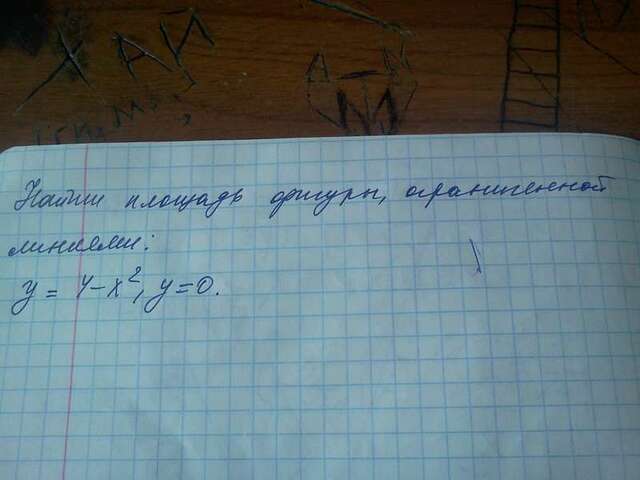 ХАЙ
А М
М
Найти площадь фигуры, ограниченной
линиями:
y = 4-x², y=0.